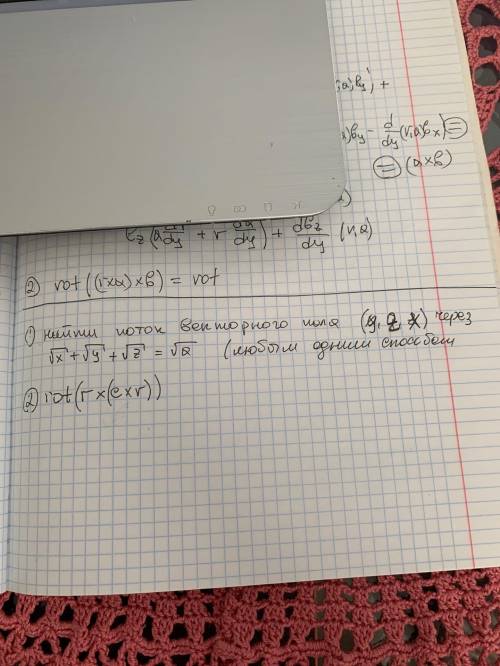 ,a)by +
)by - d/dy (r,a)bx) =
= (a×b)
bz (a dr/dy + r da/dy) + dbz/dy (r,a)
② rot((r×a)×b) = rot
① найти поток векторного поля (y, z, x) через
√x + √y + √z = √a (любым одним способом
② rot(r×(c×r))